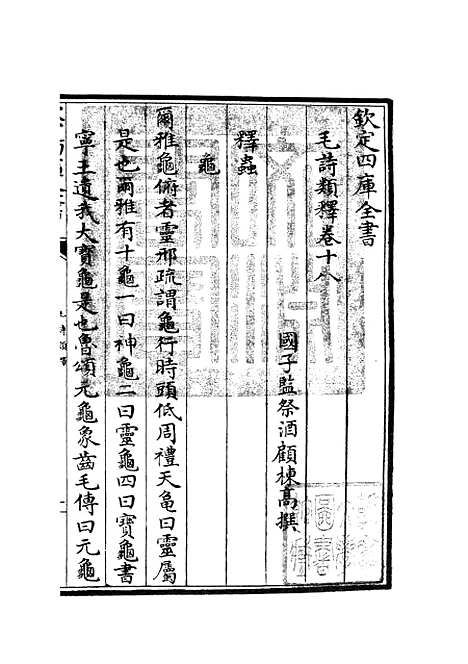 欽定四庫全書
毛詩類釋卷十八
國子監祭酒顧棟高撰
釋蟲
龜
爾雅龜俯者靈邢疏謂龜行時頭低周禮天龜曰靈屬
是也爾雅有十龜一曰神龜二曰靈龜四曰寶龜書
寧王遺我大寶龜是也魯頌元龜象齒毛傳曰元龜